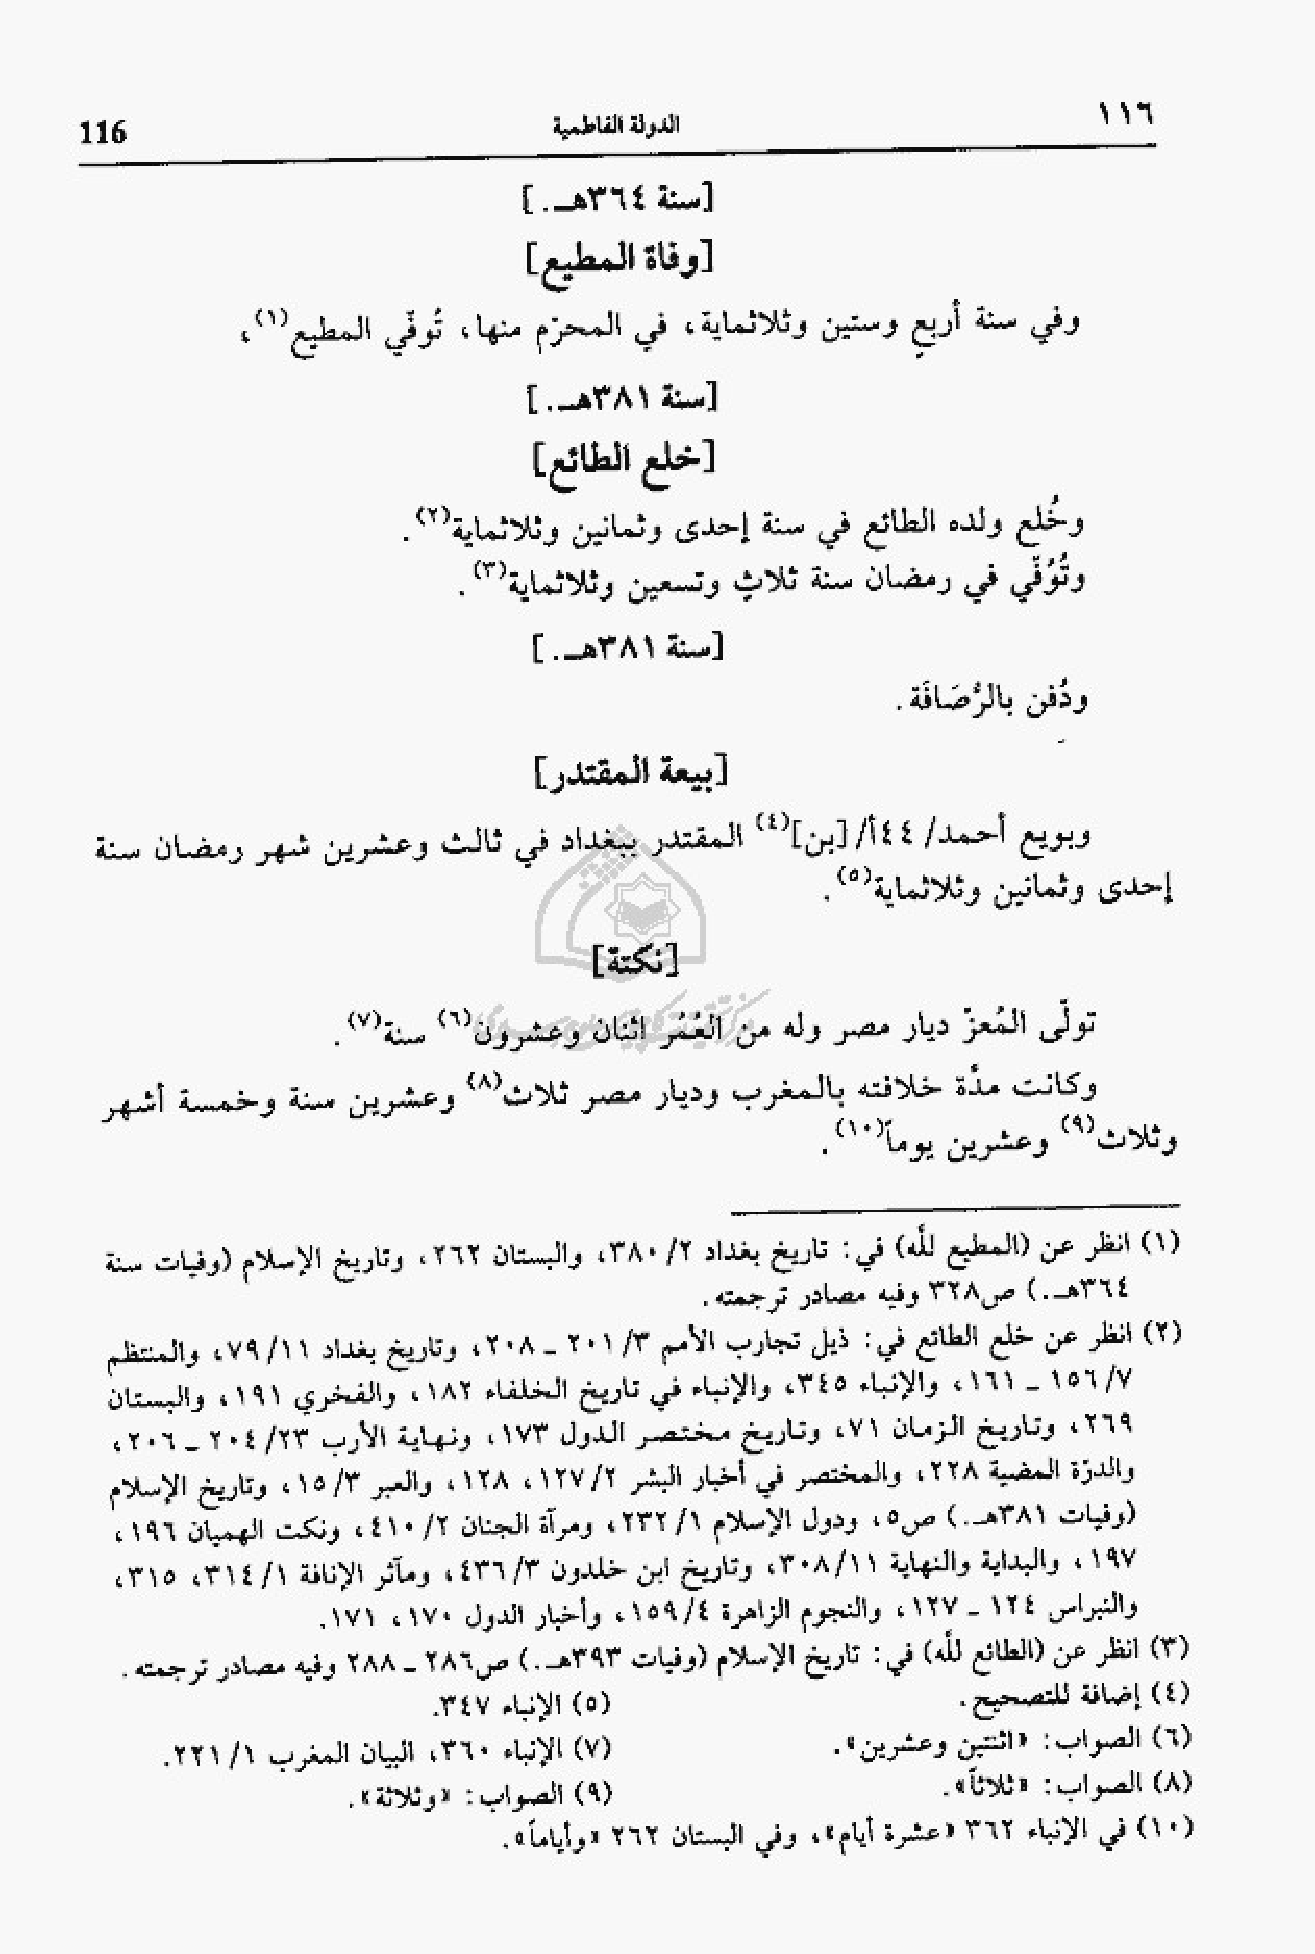 ١١٦
الدولة الفاطمية
116
[سنة ٣٦٤هـ.]
[وفاة المطيع]
وفي سنة أربعٍ وستين وثلاثماية، في المحرّم منها، تُوفّي المطيع(١)،
[سنة ٣٨١هـ.]
[خلع الطائع]
وخُلع ولده الطائع في سنة إحدى وثمانين وثلاثماية(٢).
وتُوُفّي في رمضان سنة ثلاثٍ وتسعين وثلاثماية(٣).
[سنة ٣٨١هـ.]
ودُفن بالرُصَافَة.
[بيعة المقتدر]
وبويع أحمد/ ٤٤أ/ [بن](٤) المقتدر ببغداد في ثالث وعشرين شهر رمضان سنة
إحدى وثمانين وثلاثماية(٥).
[نكتة]
تولّى المُعزّ ديار مصر وله من العُمُر اثنان وعشرون(٦) سنة(٧).
وكانت مدّة خلافته بالمغرب وديار مصر ثلاث(٨) وعشرين سنة وخمسة أشهر
وثلاث(٩) وعشرين يوماً(١٠).
(١) انظر عن (المطيع لله) في: تاريخ بغداد ٢/ ٣٨٠، والبستان ٢٦٢، وتاريخ الإسلام (وفيات سنة
٣٦٤هـ.) ص٣٢٨ وفيه مصادر ترجمته.
(٢) انظر عن خلع الطائع في: ذيل تجارب الأمم ٣/ ٢٠١ ـ ٢٠٨، وتاريخ بغداد ١١/ ٧٩، والمنتظم
٧/ ١٥٦ ـ ١٦١، والإنباء ٣٤٥، والإنباء في تاريخ الخلفاء ١٨٢، والفخري ١٩١، والبستان
٢٦٩، وتاريخ الزمان ٧١، وتاريخ مختصر الدول ١٧٣، ونهاية الأرب ٢٣/ ٢٠٤ ـ ٢٠٦،
والدرّة المضية ٢٢٨، والمختصر في أخبار البشر ٢/ ١٢٧، ١٢٨، والعبر ٣/ ١٥، وتاريخ الإسلام
(وفيات ٣٨١هـ.) ص٥، ودول الإسلام ١/ ٢٣٢، ومرآة الجنان ٢/ ٤١٠، ونكت الهميان ١٩٦،
١٩٧، والبداية والنهاية ١١/ ٣٠٨، وتاريخ ابن خلدون ٣/ ٤٣٦، ومآثر الإنافة ١/ ٣١٤، ٣١٥،
والنبراس ١٢٤ ـ ١٢٧، والنجوم الزاهرة ٤/ ١٥٩، وأخبار الدول ١٧٠، ١٧١.
(٣) انظر عن (الطائع لله) في: تاريخ الإسلام (وفيات ٣٩٣هـ.) ص٢٨٦ ـ ٢٨٨ وفيه مصادر ترجمته.
(٤) إضافة للتصحيح.
(٥) الإنباء ٣٤٧.
(٦) الصواب: «اثنتين وعشرين».
(٧) الإنباء ٣٦٠، البيان المغرب ١/ ٢٢١.
(٨) الصواب: «ثلاثاً».
(٩) الصواب: «وثلاثة».
(١٠) في الإنباء ٣٦٢ «عشرة أيام»، وفي البستان ٢٦٢ «وأياماً».